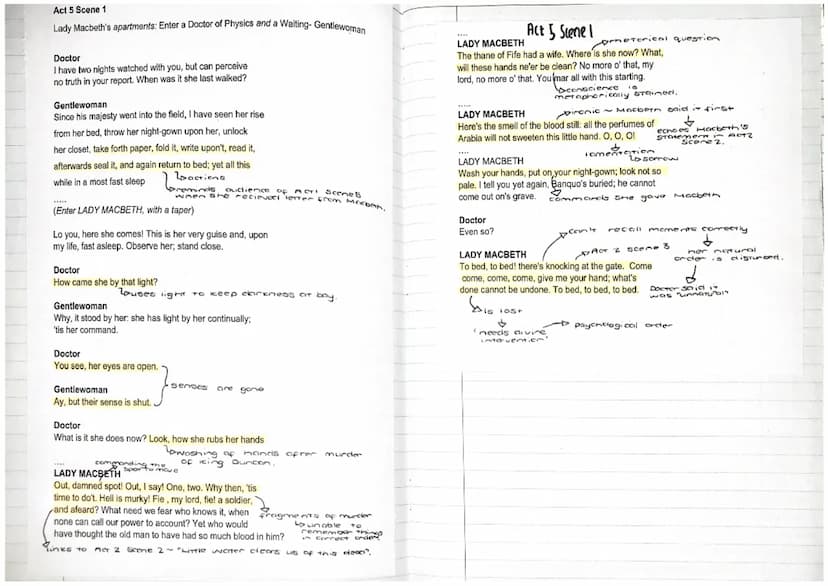 Act 5 Scene 1
Lady Macbeth's apartments: Enter a Doctor of Physics and a Waiting- Gentlewoman
Doctor
I have two nights watched with you, but can perceive
no truth in your report. When was it she last walked?
Gentlewoman
Since his majesty went into the field, I have seen her rise
from her bed, throw her night-gown upon her, unlock
her closet, take forth paper, fold it, write upon't, read it,
afterwards seal it, and again return to bed; yet all this
while in a most fast sleep
actions
reminds audience of Act 1 Scene 5
when she recieved letter from Macbeth.
.....
(Enter LADY MACBETH, with a taper)
Lo you, here she comes! This is her very guise and, upon
my life, fast asleep. Observe her; stand close.
Doctor
How came she by that light?
uses light to keep darkness at bay.
Gentlewoman
Why, it stood by her: she has light by her continually;
'tis her command.
Doctor
You see, her eyes are open.
senses are gone
Gentlewoman
Ay, but their sense is shut.
Doctor
What is it she does now? Look, how she rubs her hands
washing of hands after murder
of King Duncan.
....
commanding the
spot to move
LADY MACBETH
Out, damned spot! Out, I say! One, two. Why then, 'tis
time to do't. Hell is murky! Fie , my lord, fie! a soldier,
and afeard? What need we fear who knows it, when
none can call our power to account? Yet who would
have thought the old man to have had so much blood in him?
fragments of murder
unable to
remember things
in correct order
links to Act 2 Scene 2 ~ "Little water clears us of this deed".
Act 5 Scene 1
....
LADY MACBETH
rhetorical question
The thane of Fife had a wife. Where is she now? What,
will these hands ne'er be clean? No more o' that, my
lord, no more o' that. You mar all with this starting.
conscience is
metaphorically stained.
LADY MACBETH
ironic ~ Macbeth said it first
Here's the smell of the blood still: all the perfumes of
Arabia will not sweeten this little hand. O, O, O!
echoes Macbeth's
statement in Act 2
Scene 2.
lamentation
sorrow
....
LADY MACBETH
Wash your hands, put on your night-gown; look not so
pale. I tell you yet again, Banquo's buried; he cannot
come out on's grave.
commands she gave Macbeth
Doctor
Even so?
can't recall moments correctly
her natural
order is disturbed.
Doctor said it
was "unnatural"
LADY MACBETH
Act 2 Scene 3
To bed, to bed! there's knocking at the gate. Come
come, come, come, give me your hand; what's
done cannot be undone. To bed, to bed, to bed.
is lost
'needs divine
intervention'
psychological order